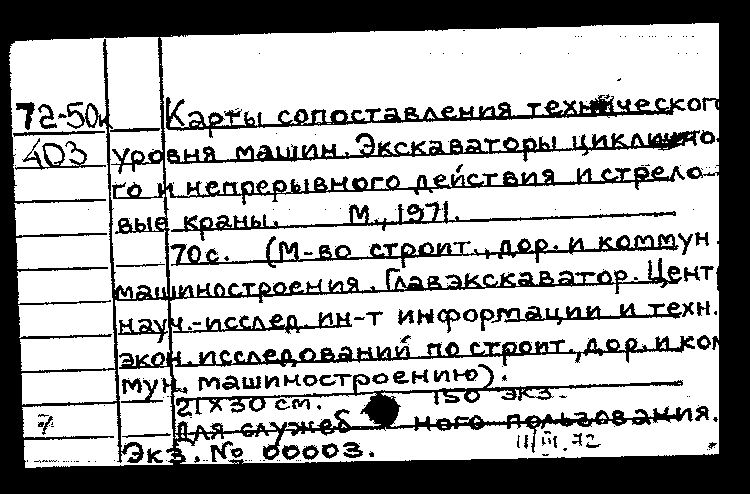 72-50к Карты сопоставления технического
403 уровня машин. Экскаваторы циклично
го и непрерывного действия и стрело
вые краны. М., 1971.
70с. (М-во строит., дор. и коммун.
машиностроения. Главэкскаватор. Центр
науч.-исслед. ин-т информации и техн.
экон. исследований по строит., дор. и ком
мун. машиностроению).
21х30 см. 150 экз.
Для служебного пользования.
Экз. № 00003. 11/III.72